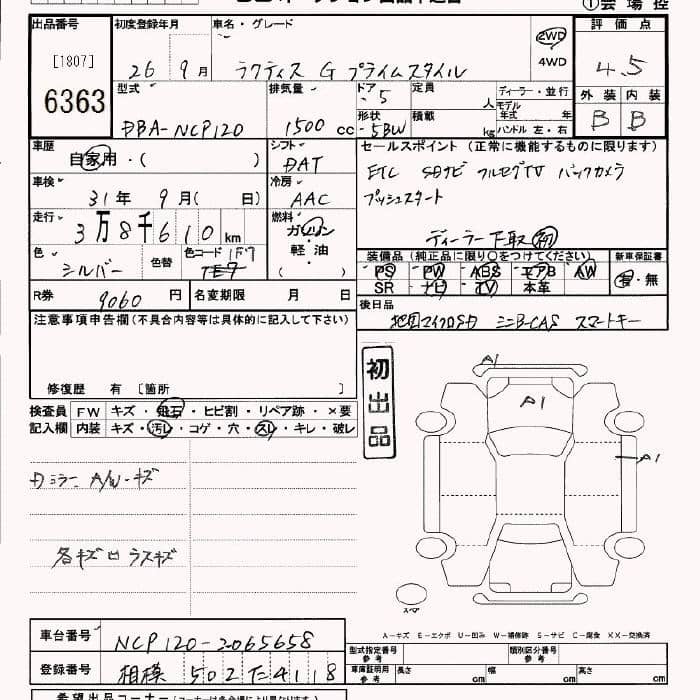 出品番号 初度登録年月 車名・グレード 評価点
[1807] 26 9月 ラクティス G プライムスタイル 2WD 4WD 4.5
6363
型式 排気量 ドア 5 定員 人 ディーラー・並行 外装 内装
DBA-NCP120 1500 cc 形状 5BW 積載 kg モデル年式 年 ハンドル 左・右 B B
車歴 シフト セールスポイント (正常に機能するものに限ります)
自家用・( ) DAT ETC SDナビ フルセグTV バックカメラ
車検 冷房 プッシュスタート
31年 9月( 日) AAC
走行 燃料
3万8千610km ガソリン ディーラー下取 初
色 色替 色コード 1F7 軽・油 装備品(純正品に限り○をつけてください) 新車保証書
シルバー ( ) PS PW ABS エアB AW 有・無
SR ナビ TV 本革
R券 9060円 名変期限 月 日 後日品
注意事項申告欄(不具合内容等は具体的に記入して下さい) 地図マイクロSD ミニB-CAS スマートキー
初出品
修復歴 有 [箇所 ]
検査員 FW キズ・飛石・ヒビ割・リペア跡・×要
記入欄 内装 キズ・汚レ・コゲ・穴・スレ・キレ・破レ
A1
A1
A1
Dミラー A/W・キズ
各キズ凹 ラスキズ
スペア
A-キズ E-エクボ U-凹み W-補修跡 S-サビ C-腐食 XX-交換済
車台番号 NCP120-2065658
型式指定番号 参考 類別区分番号 参考
登録番号 相模 502 た 4118
車庫証明用 参考 長さ cm 幅 cm 高さ cm
希望出品コーナー